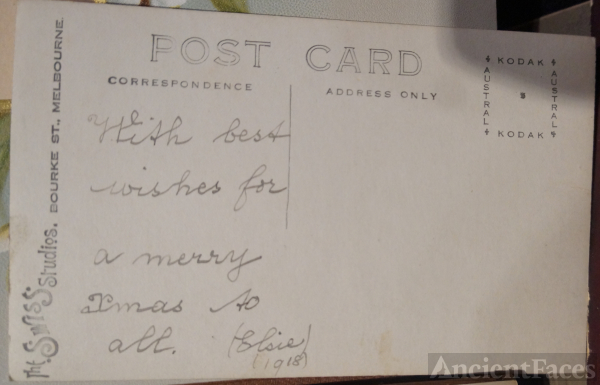 POST CARD
CORRESPONDENCE
ADDRESS ONLY
KODAK
AUSTRAL
AUSTRAL
KODAK
The Swiss Studios. BOURKE ST., MELBOURNE.
With best
wishes for
a merry
Xmas to
all. (Elsie)
(1918)
AncientFaces